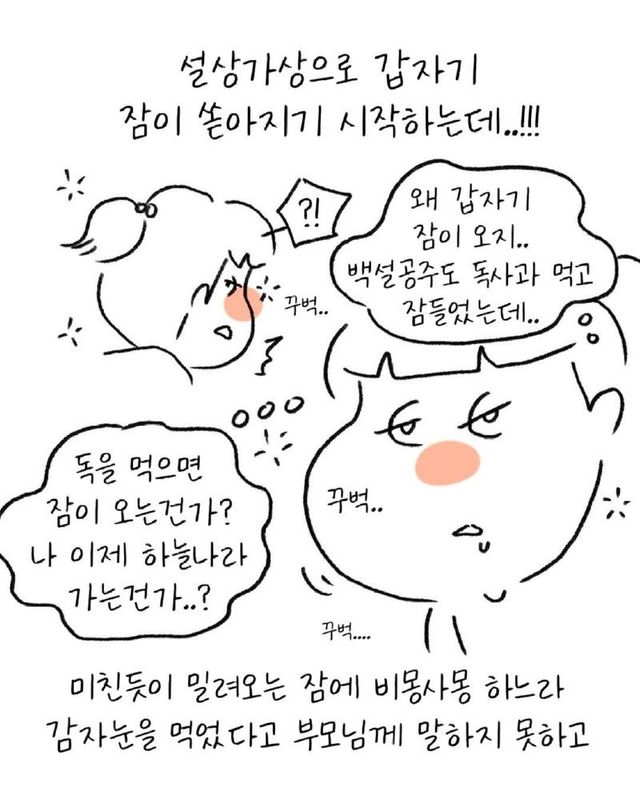 설상가상으로 갑자기
잠이 쏟아지기 시작하는데..!!!
?!
왜 갑자기
잠이 오지..
백설공주도 독사과 먹고
잠들었는데..
꾸벅..
독을 먹으면
잠이 오는건가?
나 이제 하늘나라
가는건가..?
꾸벅..
꾸벅....
미친듯이 밀려오는 잠에 비몽사몽 하느라
감자눈을 먹었다고 부모님께 말하지 못하고